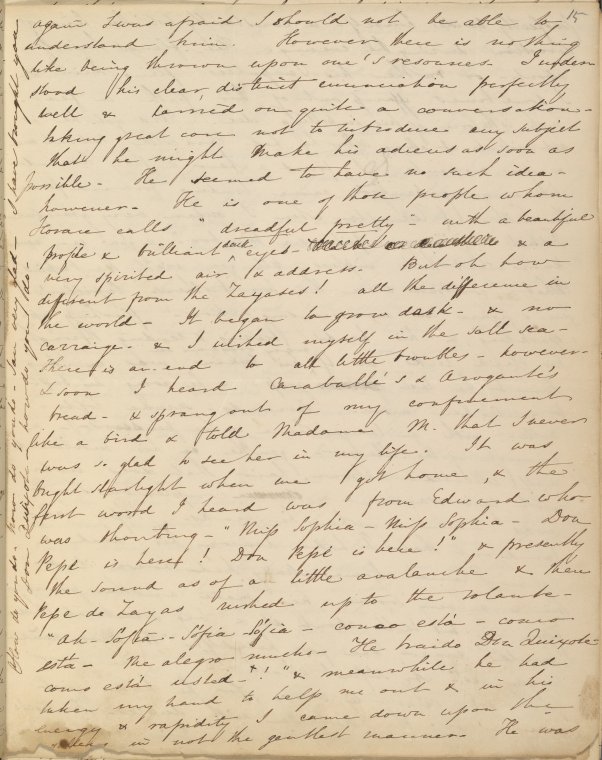 15
again I was afraid I should not be able to
understand him. However there is nothing
like being thrown upon one's resources. I under
stood his clear, distinct enunciation perfectly
well & carried on quite a conversation -
taking great care not to introduce any subject
that he might make his adieus as soon as
possible - He seemed to have no such idea -
however - He is one of those people whom
Horace calls "dreadful pretty" - with a beautiful
profile & brilliant dark eyes - & a
very spirited air & address. But oh how
different from the Zayases! all the difference in
the world - It began to grow dark - & no
carraige - & I wished myself in the salt sea -
There is an end to all little troubles - however -
& soon I heard Caraballé's & Aroganté's
tread - & sprang out of my confinement
like a bird & told Madame M. that I never
was so glad to see her in my life. It was
bright starlight when we got home, & the
first word I heard was from Edward who
was shouting - "Miss Sophia - Miss Sophia - Don
Pepe is here! Don Pepé is here!" & presently
the sound as of a little avalanche & then
Pepe de Zayas rushed up to the volante -
"Ah - Sofia - Sofia Sofia - como está - como
está - Me alegro mucho - He traido Don Quixote -
como está usted - +!" & meanwhile he had
taken my hand to help me out & in his
energy & rapidity I came down upon the
in not the gentlest manner. He was
How do you do - how do you do - I am very glad - I have brought you
Don Quixote - how do you do